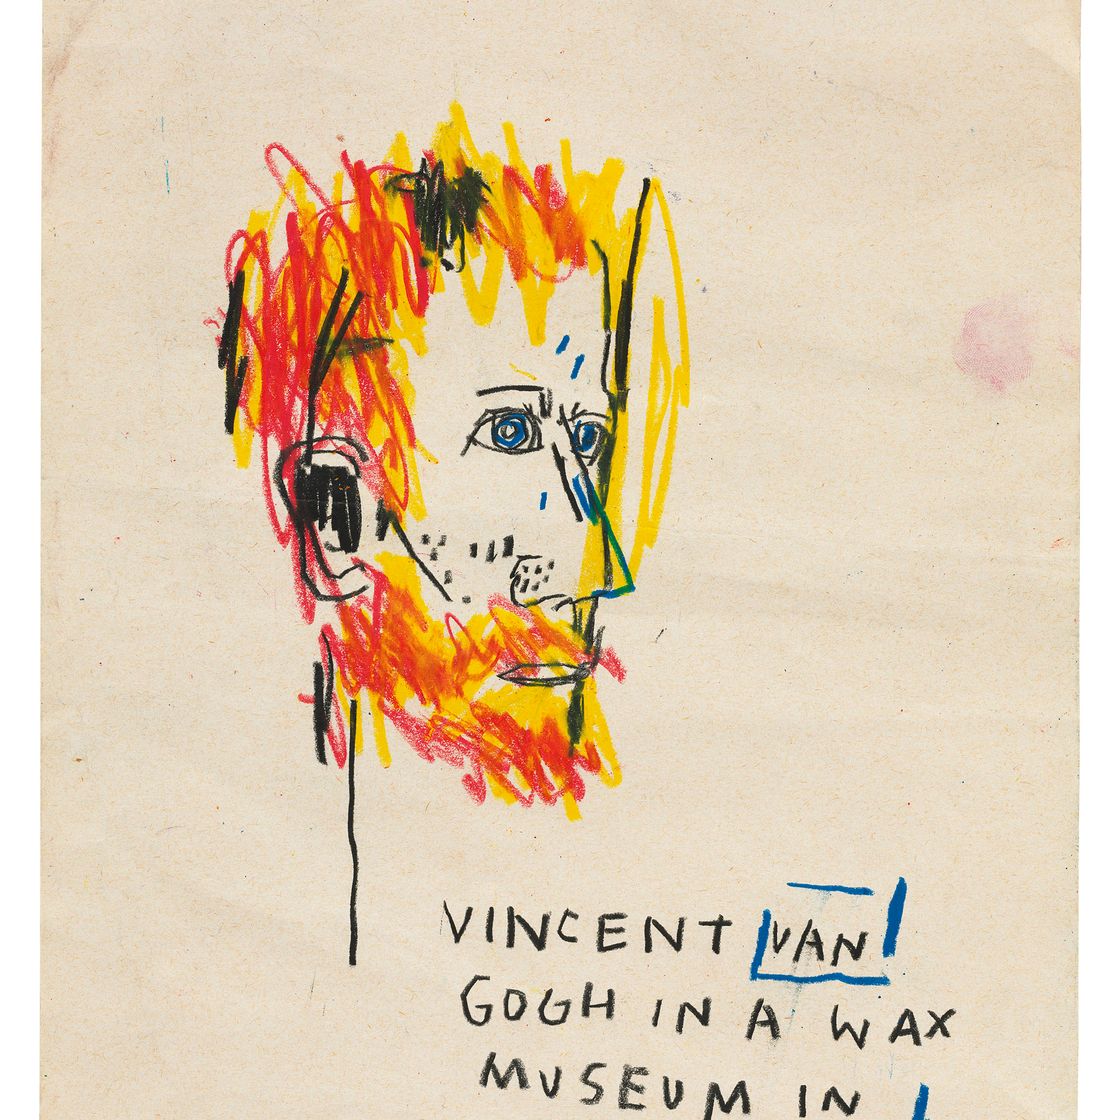 VINCENT VAN
GOGH IN A WAX
MUSEUM IN